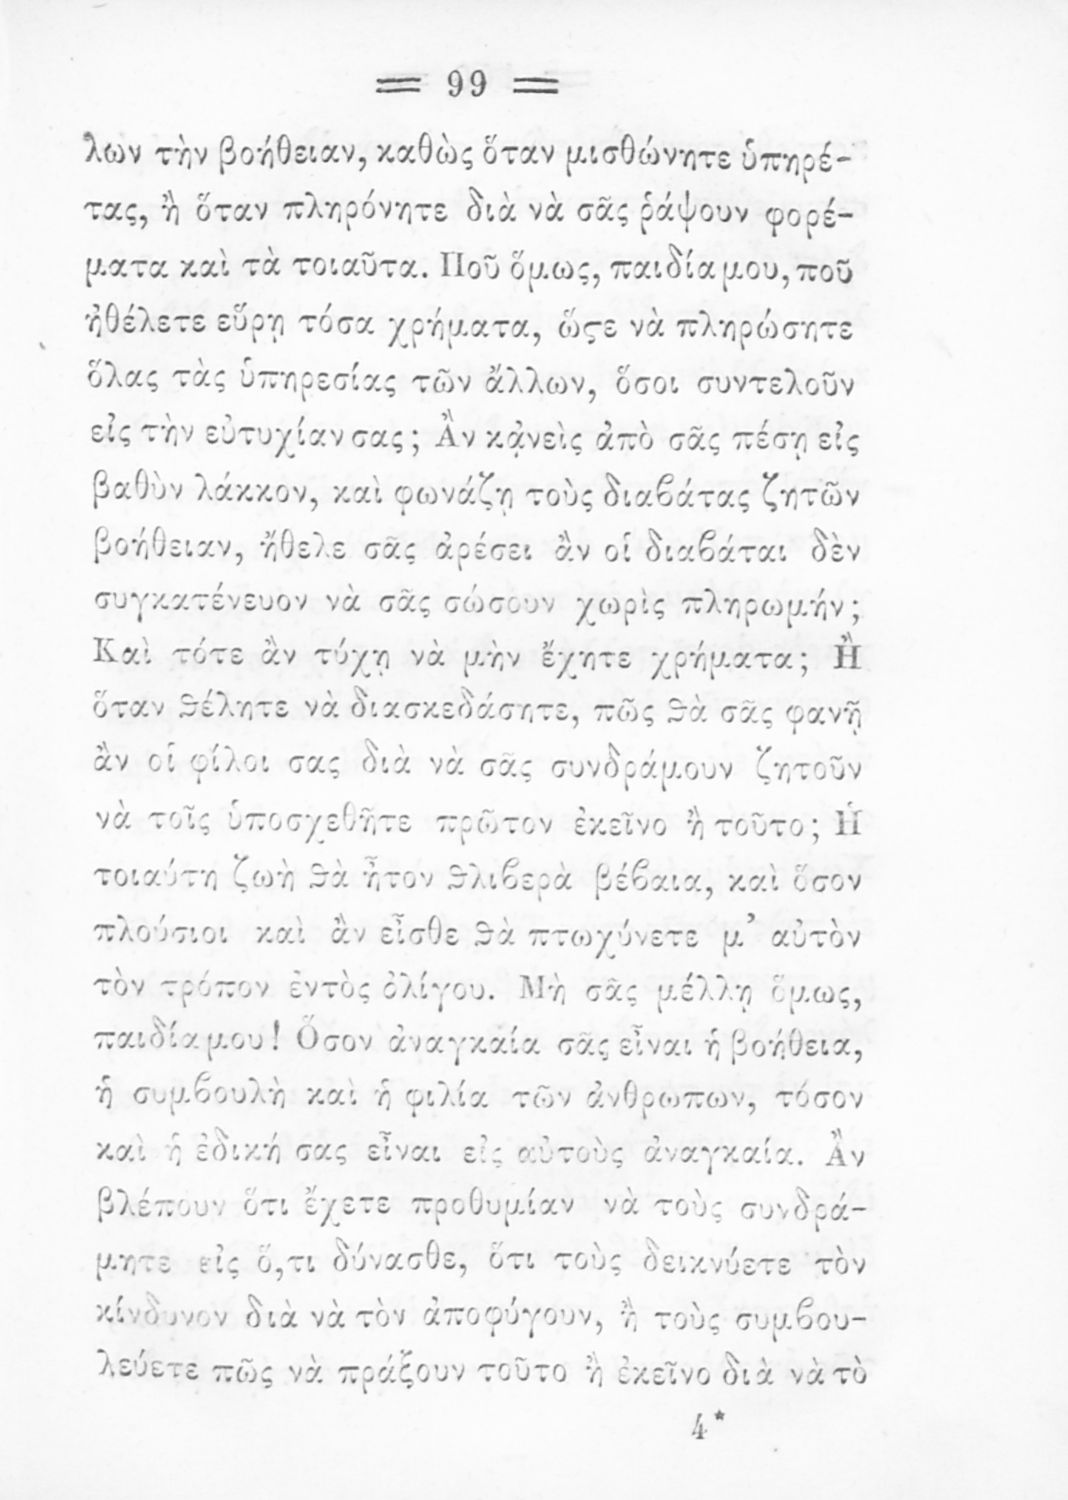 = 99 =
λων τὴν βοήθειαν, καθὼς ὅταν μισθώνητε ὑπηρέ-
τας, ἢ ὅταν πληρόνητε διὰ νὰ σᾶς ῥάψουν φορέ-
ματα καὶ τὰ τοιαῦτα. Ποῦ ὅμως, παιδία μου, ποῦ
ἠθέλετε εὕρῃ τόσα χρήματα, ὥϛε νὰ πληρώσητε
ὅλας τὰς ὑπηρεσίας τῶν ἄλλων, ὅσοι συντελοῦν
εἰς τὴν εὐτυχίαν σας; Ἂν κᾀνεὶς ἀπὸ σᾶς πέσῃ εἰς
βαθὺν λάκκον, καὶ φωνάζῃ τοὺς διαβάτας ζητῶν
βοήθειαν, ἤθελε σᾶς ἀρέσει ἂν οἱ διαβάται δὲν
συγκατένευον νὰ σᾶς σώσουν χωρὶς πληρωμήν;
Καὶ τότε ἂν τύχῃ νὰ μὴν ἔχητε χρήματα; Ἢ
ὅταν ϑέλητε νὰ διασκεδάσητε, πῶς ϑὰ σᾶς φανῇ
ἂν οἱ φίλοι σας διὰ νὰ σᾶς συνδράμουν ζητοῦν
νὰ τοῖς ὑποσχεθῆτε πρῶτον ἐκεῖνο ἢ τοῦτο; Ἡ
τοιαύτη ζωὴ ϑὰ ἦτον ϑλιβερὰ βέβαια, καὶ ὅσον
πλούσιοι καὶ ἂν εἶσθε ϑὰ πτωχύνετε μ’ αὐτὸν
τὸν τρόπον ἐντὸς ὀλίγου. Μὴ σᾶς μέλλῃ ὅμως,
παιδία μου! Ὅσον ἀναγκαία σᾶς εἶναι ἡ βοήθεια,
ἡ συμβουλὴ καὶ ἡ φιλία τῶν ἀνθρωπων, τόσον
καὶ ἡ ἐδική σας εἶναι εἰς αὐτοὺς ἀναγκαία. Ἂν
βλέπουν ὅτι ἔχετε προθυμίαν νὰ τοὺς συνδρά-
μητε εἰς ὅ,τι δύνασθε, ὅτι τοὺς δεικνύετε τὸν
κίνδυνον διὰ νὰ τὸν ἀποφύγουν, ἢ τοὺς συμβου-
λεύετε πῶς νὰ πράξουν τοῦτο ἢ ἐκεῖνο διὰ νὰ τὸ
4*